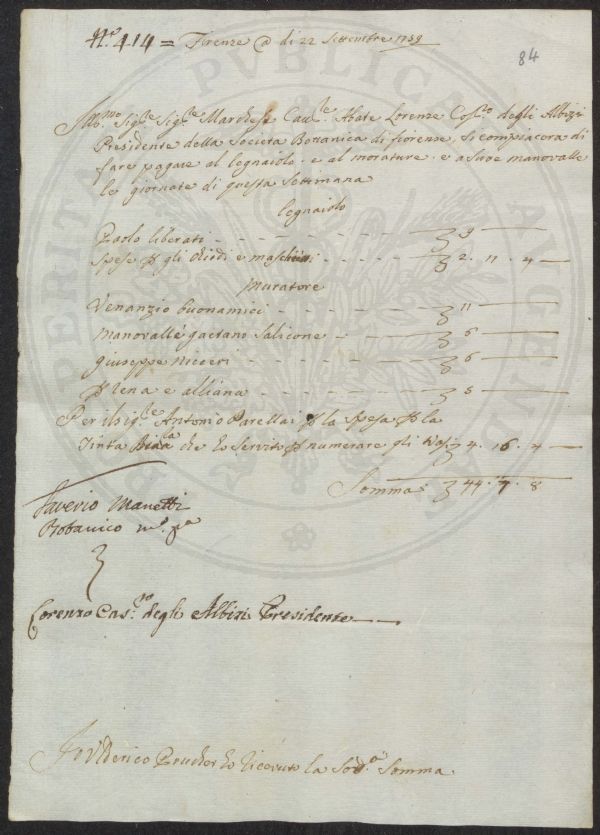 N.o 414 = Firenze @ di 22 Settembre 1759
84
Ill.mo Sig.re Sig.re Marchese Cav.re Abate Lorenzo Cos.o degli Albizzi
Presidente della Societa Bottanica di fiorenze, si compiacera di
fare pagare al legnaiolo e al moratore e a sove manovalle
le giornate di questa Settimana
legnaiolo
Paolo liberati - - - - - - - 9 —
Spese p gli chiodi e maschiati - - - - 2. 11. 4 —
Muratore
Venanzio buonamici - - - - - 11 —
Manovalle gaetano Salicone - - - 6 —
giuseppe niceri - - - - - 6 —
p rena e - - - - - 5 —
Per il sig.re Antonio Parella p la spesa p la
Tinta che ho Servito p numerare gli vasi 4. 16. 4 —
Somma: 44. 7. 8
Saverio Manetti
Botanico m.o p.a
Lorenzo Cas.no degli Albizi Presidente
Io Ulderico Prucher ho ricevuto la Sod.a Somma
PUBLICAE
AUGENDAE